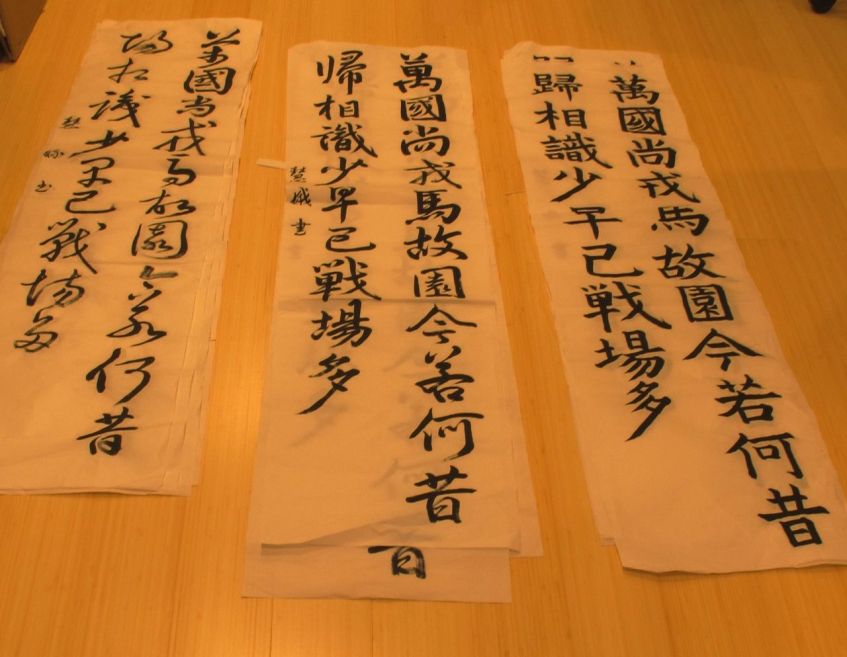 萬國尚戎馬故園今若何昔
歸相識少早已戦場多
萬國尚戎馬故園今若何昔
帰相識少早已戦場多
萬國尚戎馬故園今若何昔
帰相識少早已戰場多